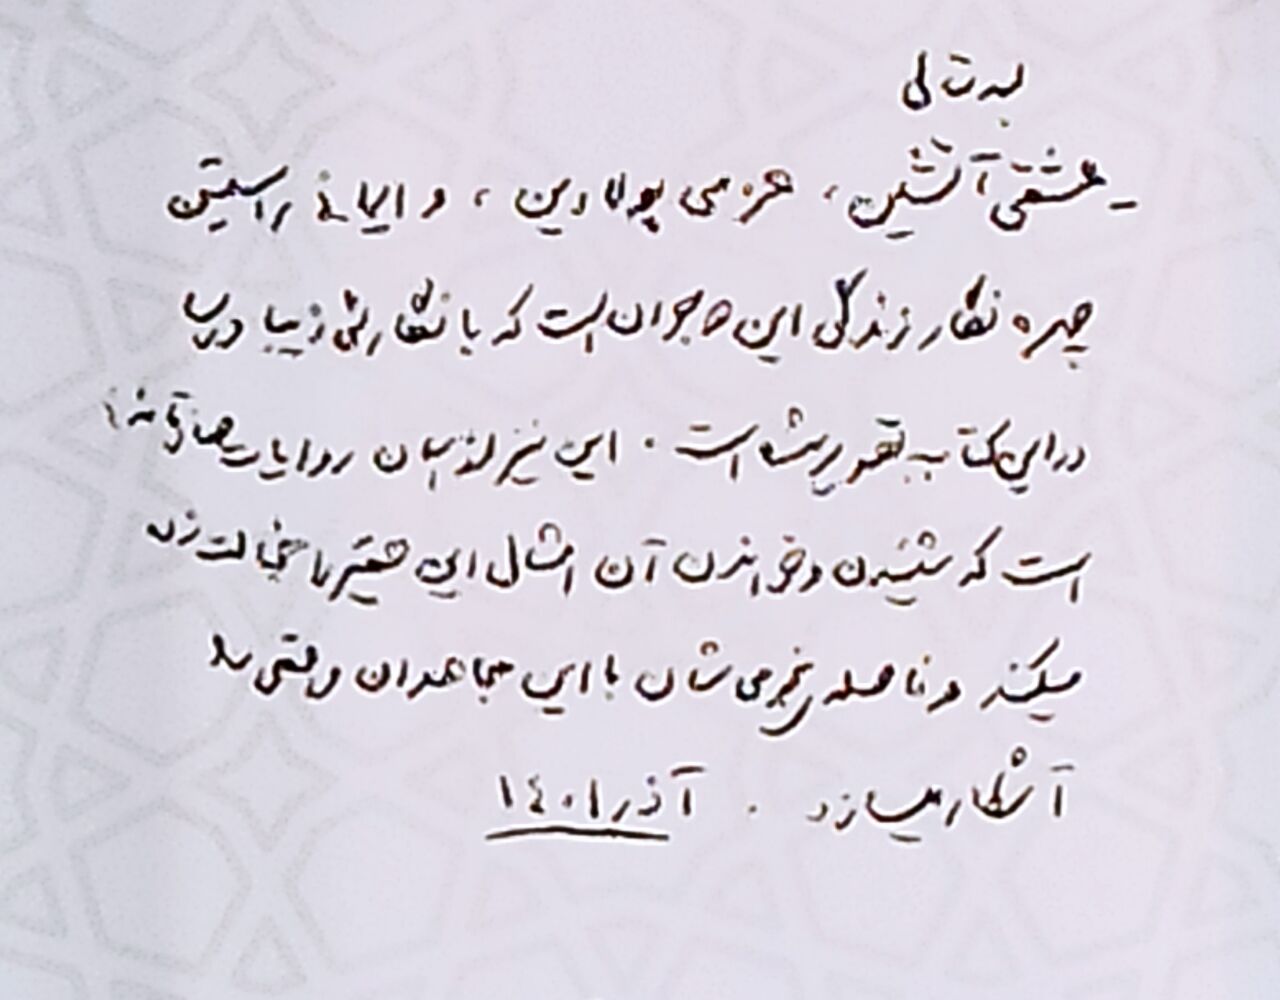 بسمه تعالی
ـ عشقی آتشین، عزمی پولادین، و ایمانی راستین
چهره نگار زندگی این جوان است که با نگارشی زیبا و رسا
در این کتاب تصویر شده است. این نیز از آن روایات صادقانه‌ای
است که شنیدن و خواندن آن امثال این حقیر را خجالت‌زده
میکند و فاصله نجومی‌شان با این مجاهدان واقعی را
آشکار میسازد. آذر ۱۴۰۱